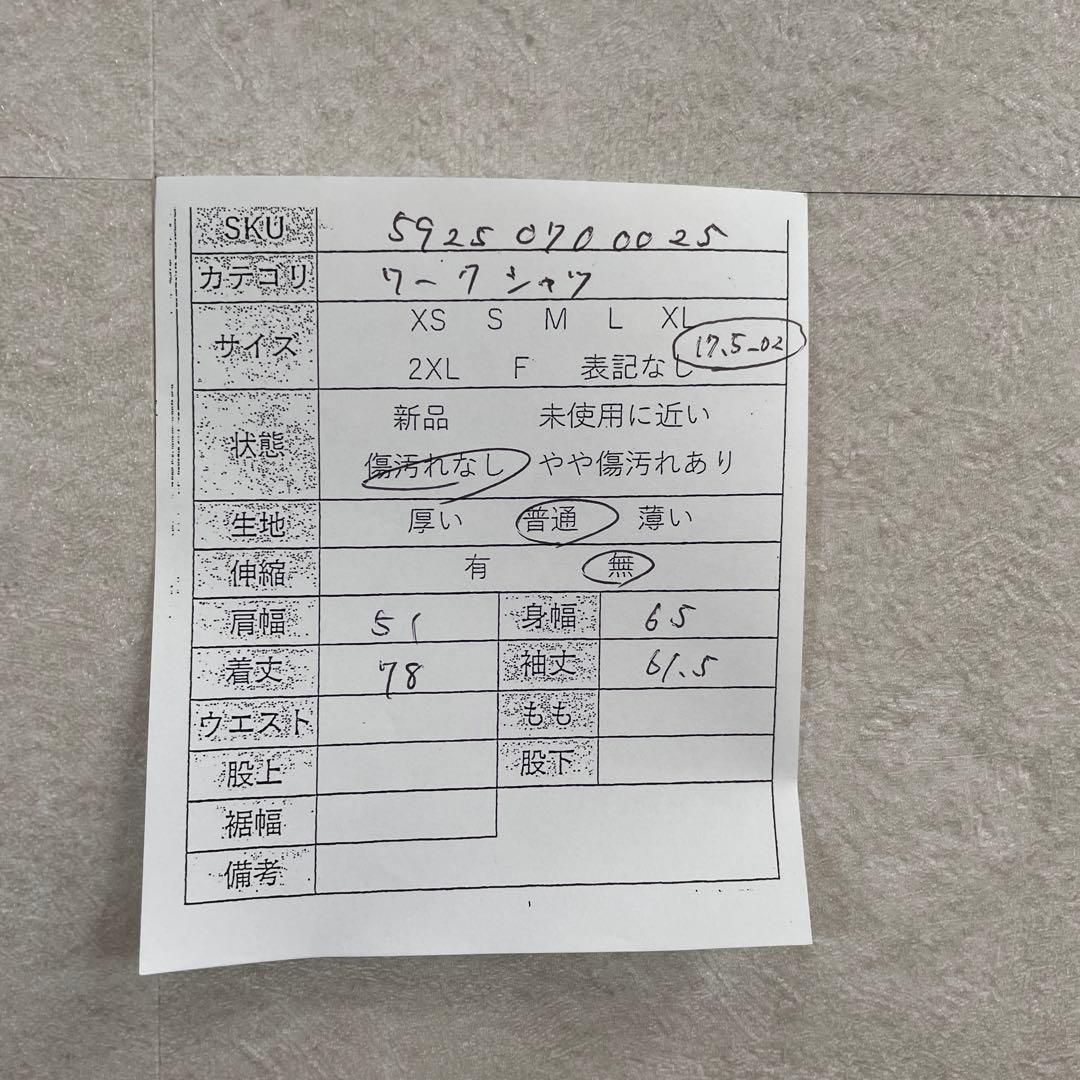 SKU 5925 0700025
カテゴリ ワークシャツ
サイズ XS S M L XL
17.5-02
2XL F 表記なし
状態 新品 未使用に近い
傷汚れなし やや傷汚れあり
生地 厚い 普通 薄い
伸縮 有 無
肩幅 51 身幅 65
着丈 78 袖丈 61.5
ウエスト もも
股上 股下
裾幅
備考